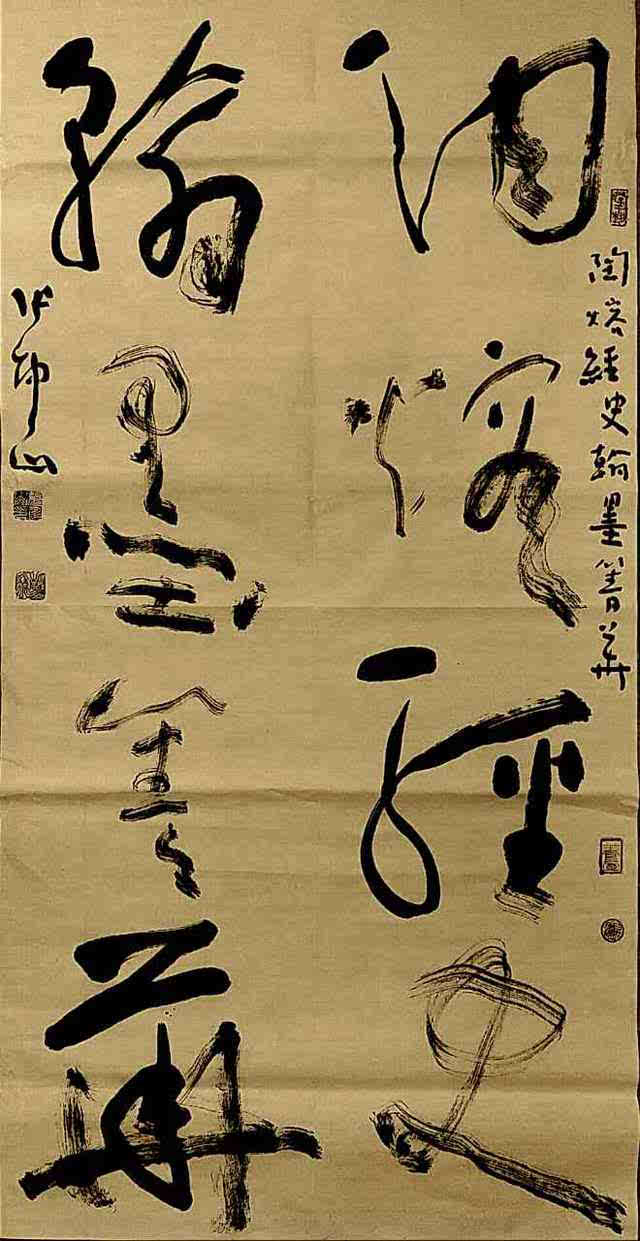 陶熔經史翰墨菁華
陶熔經史
翰墨菁華
山